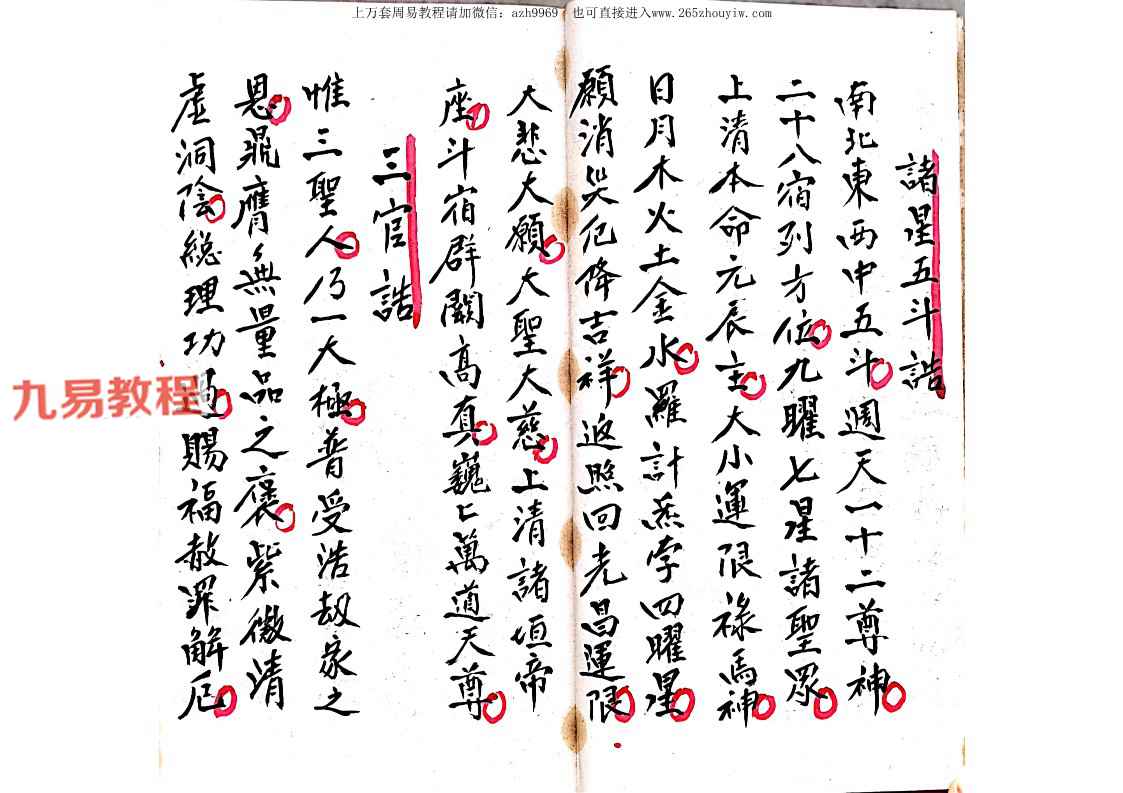 上万套周易教程请加微信：azh9969 也可直接进入www.265zhouyiw.com
諸星五斗誥
南北東西中五斗週天一十二尊神
二十八宿列方位九曜七星諸聖眾
上清本命元辰主大小運限祿馬神
日月木火土金水羅計炁孛四曜星
願消災厄降吉祥返照回光昌運限
大悲大願大聖大慈上清諸垣帝
座斗宿群闕高真巍〻萬道天尊
三官誥
惟三聖人乃一大極普受浩劫家之
恩鼎膺無量品之褒紫微清
虛洞陰總理功過賜福赦罪解厄
九易教程